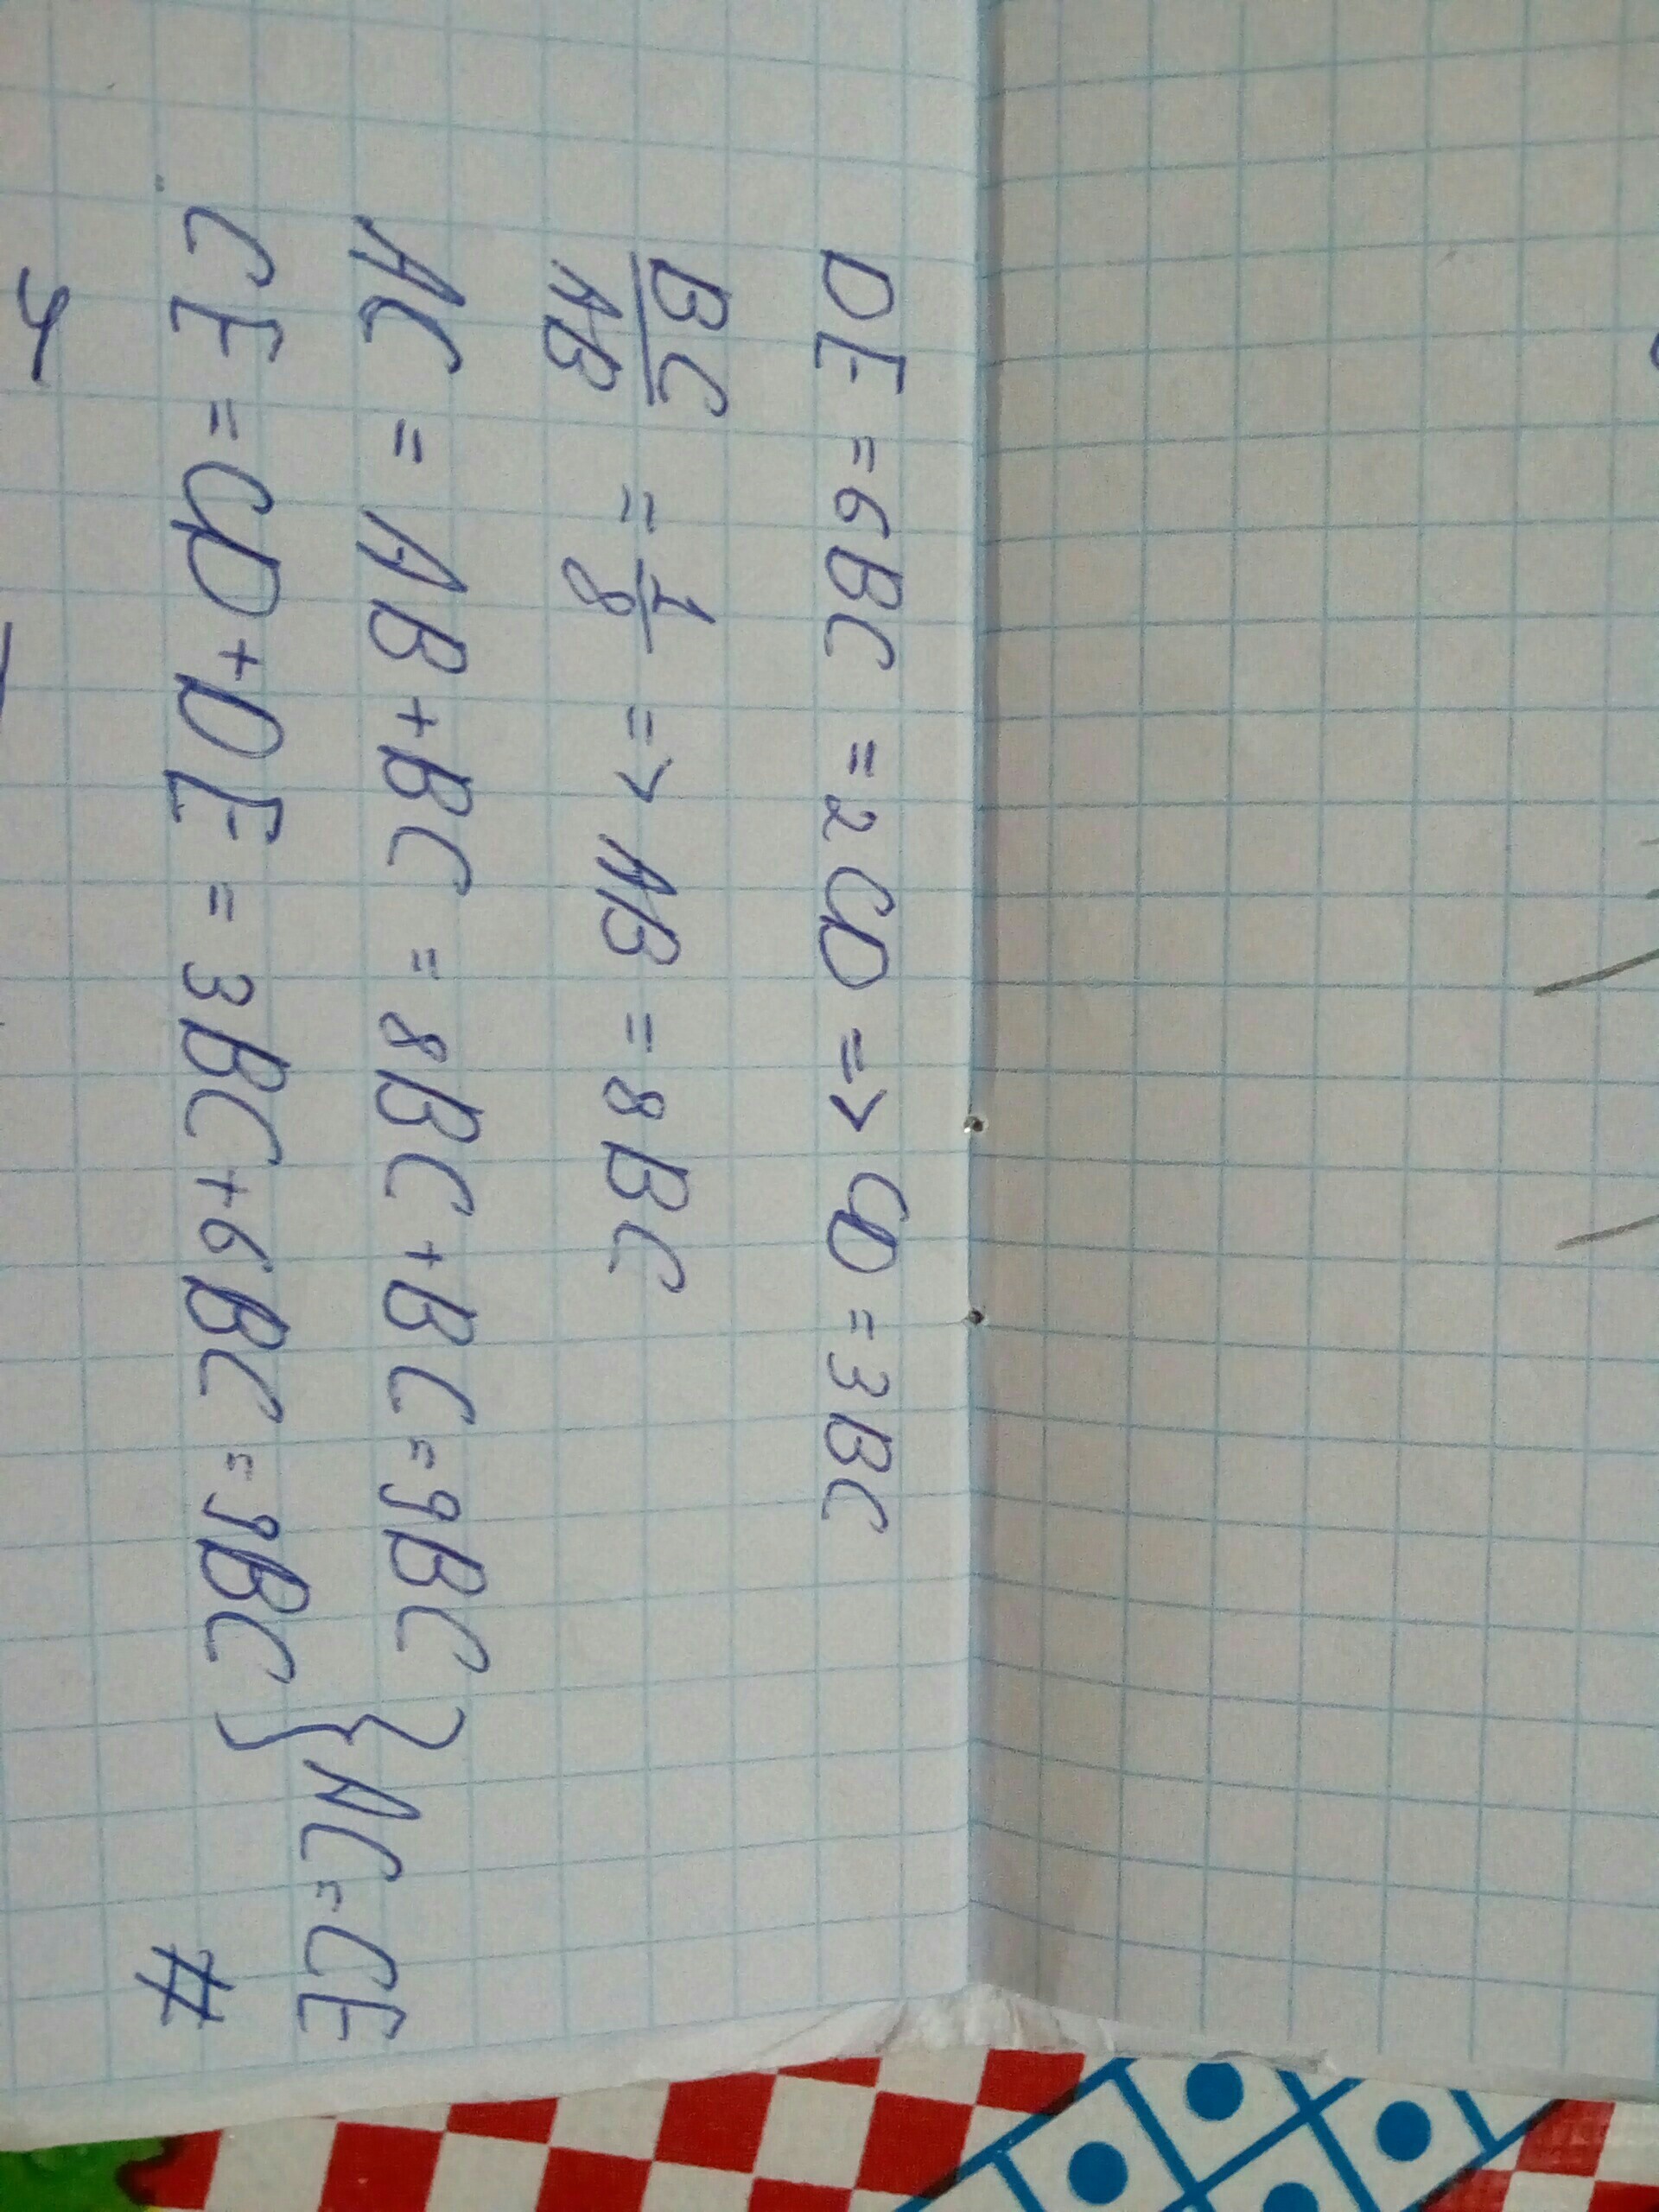 DE = 6BC = 2CD => CD = 3BC
BC/AB = 1/8 => AB = 8BC
AC = AB + BC = 8BC + BC = 9BC } AC = CE
CE = CD + DE = 3BC + 6BC = 9BC
#